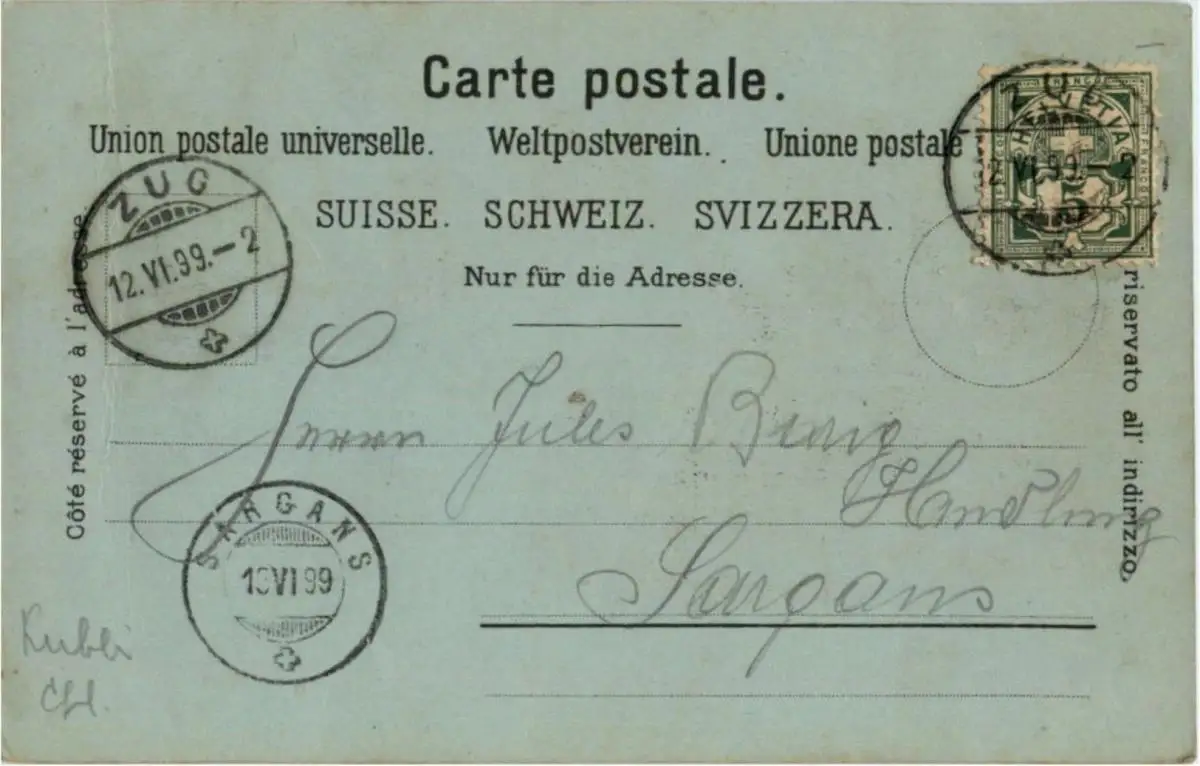 Carte postale.
Union postale universelle. Weltpostverein. Unione postale
SUISSE. SCHWEIZ. SVIZZERA.
Nur für die Adresse.
Côté réservé à l'adresse
riservato all' indirizzo.
ZUG
12.VI.99.-2
FRANCO
HELVETIA
5
ZUG
12.VI.99.-2
Herrn Jules
Handlung
Sargans
SARGANS
VI 99